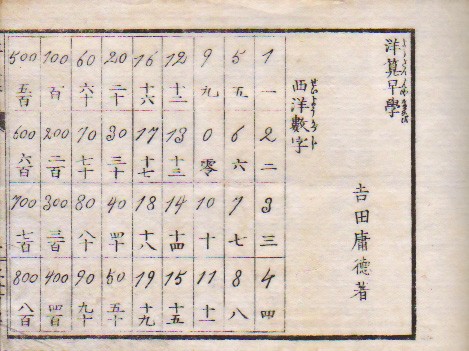 洋算早學
吉田庸德著
西洋數字
1 一 2 二 3 三 4 四
5 五 6 六 7 七 8 八
9 九 0 零 10 十 11 十一
12 十二 13 十三 14 十四 15 十五
16 十六 17 十七 18 十八 19 十九
20 二十 30 三十 40 四十 50 五十
60 六十 70 七十 80 八十 90 九十
100 百 200 二百 300 三百 400 四百
500 五百 600 六百 700 七百 800 八百